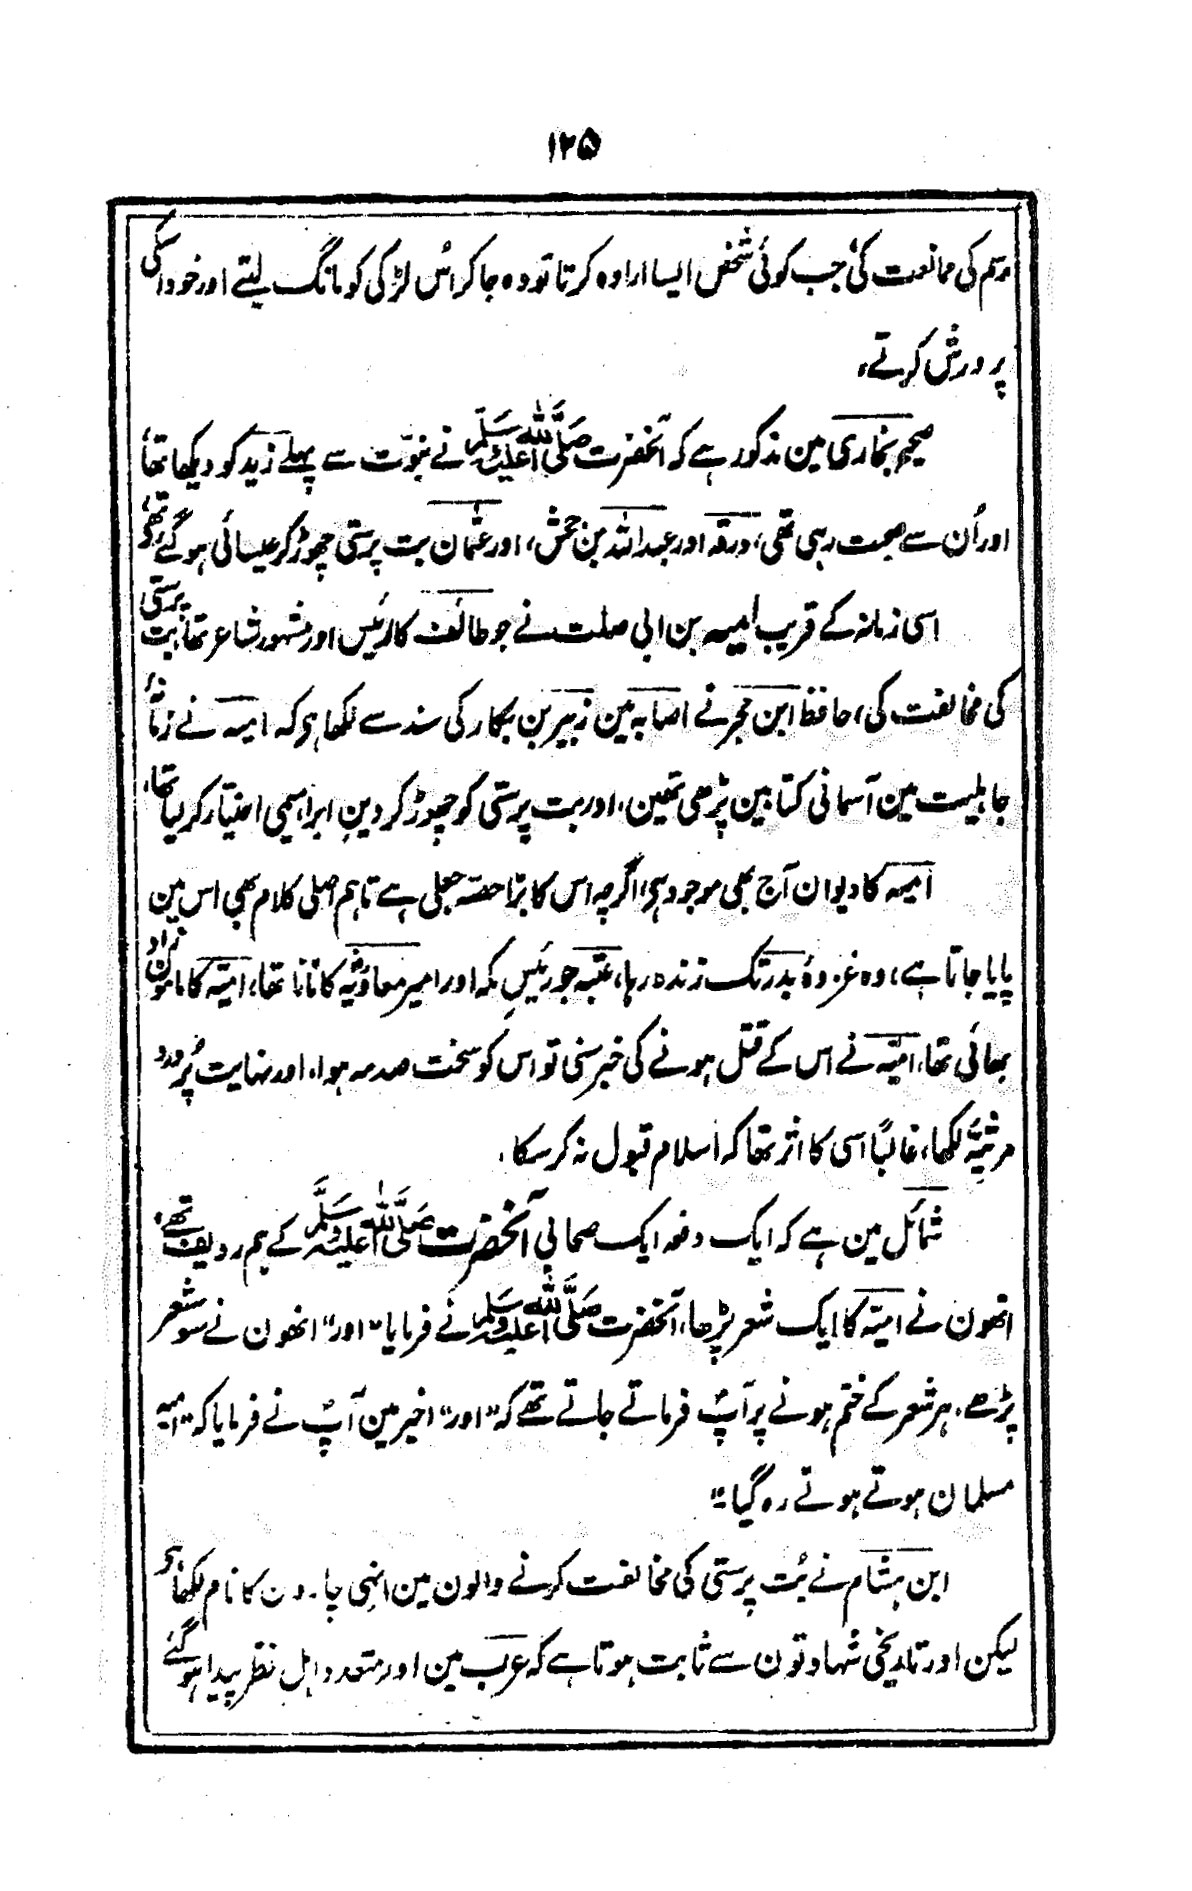 ۱۲۵
رسم کی ممانعت کی، جب کوئی شخص ایسا ارادہ کرتا تو وہ جا کر اُس لڑکی کو مانگ لیتے اور خود اسکی
پرورش کرتے،
صحیح بخاری مین مذکور ہے کہ آنحضرت صَلَّى اللّٰهُ عَلَيْهِ وَسَلَّمَ نے نبوّت سے پہلے زید کو دیکھا تھا،
اور اُن سے صحبت رہی تھی، ورقہ اور عبد اللّٰہ بن جحش، اور عثمان بت پرستی چھوڑ کر عیسائی ہو گئے تھے،
اسی زمانہ کے قریب امیہ بن ابی صلت نے جو طائف کا رئیس اور مشہور شاعر تھا، بت پرستی
کی مخالفت کی، حافظ ابن حجر نے اصابہ مین زبیر بن بکار کی سند سے لکھا ہی کہ امیہ نے زمانۂ
جاہلیت مین آسمانی کتابین پڑھی تھین، اور بت پرستی کو چھوڑ کر دینِ ابراہیمی اختیار کر لیا تھا،
امیہ کا دیوان آج بھی موجود ہی، اگرچہ اس کا بڑا حصّہ جعلی ہے تاہم اصلی کلام بھی اس مین
پایا جاتا ہے، وہ غزوۂ بدر تک زندہ رہا، عتبہ جو رئیسِ مکہ اور امیر معاویہؓ کا نانا تھا، امیّہ کا مامون زاد
بھائی تھا، امیّہ نے اس کے قتل ہونے کی خبر سنی تو اس کو سخت صدمہ ہوا، اور نہایت پُر درد
مرثیہ لکھا، غالباً اسی کا اثر تھا کہ اسلام قبول نہ کر سکا،
شمائل مین ہے کہ ایک دفعہ ایک صحابی آنحضرت صَلَّى اللّٰهُ عَلَيْهِ وَسَلَّمَ کے ہم ردیف تھے،
انھون نے امیّہ کا ایک شعر پڑھا، آنحضرت صَلَّى اللّٰهُ عَلَيْهِ وَسَلَّمَ نے فرمایا "اور" انھون نے سو شعر
پڑھے، ہر شعر کے ختم ہونے پر آپؐ فرماتے جاتے تھے کہ "اور" اخیر مین آپؐ نے فرمایا کہ "امیہ
مسلمان ہوتے ہوتے رہ گیا،"
ابن ہشام نے بُت پرستی کی مخالفت کرنے والون مین انہی چارون کا نام لکھا ہی
لیکن اور تاریخی شہادتون سے ثابت ہوتا ہے کہ عرب مین اور متعدد اہل نظر پیدا ہو گئے